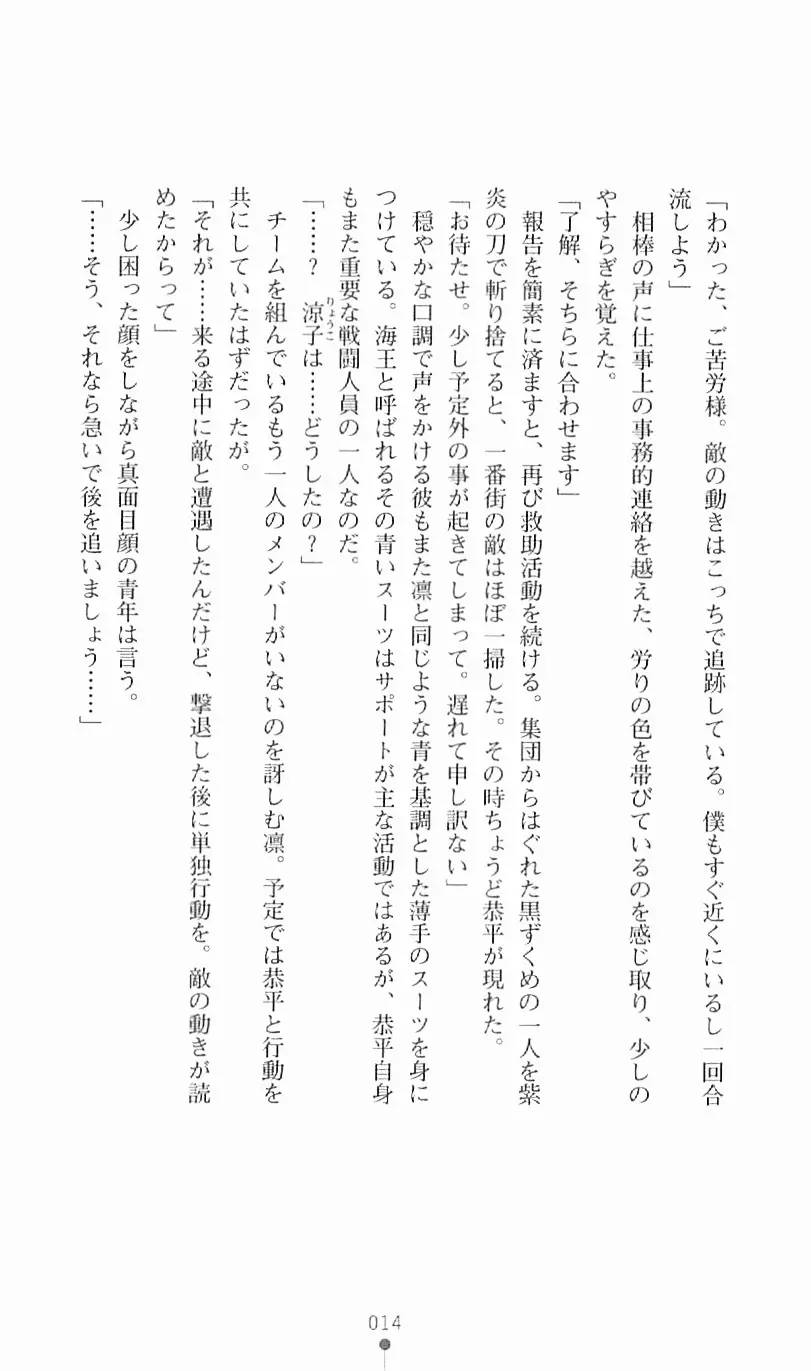 「わかった、ご苦労様。敵の動きはこっちで追跡している。僕もすぐ近くにいるし一回合
流しよう」
　相棒の声に仕事上の事務的連絡を越えた、労りの色を帯びているのを感じ取り、少しの
やすらぎを覚えた。
「了解、そちらに合わせます」
　報告を簡素に済ますと、再び救助活動を続ける。集団からはぐれた黒ずくめの一人を紫
炎の刀で斬り捨てると、一番街の敵はほぼ一掃した。その時ちょうど恭平が現れた。
「お待たせ。少し予定外の事が起きてしまって。遅れて申し訳ない」
　穏やかな口調で声をかける彼もまた凛と同じような青を基調とした薄手のスーツを身に
つけている。海王と呼ばれるその青いスーツはサポートが主な活動ではあるが、恭平自身
もまた重要な戦闘人員の一人なのだ。
「……？　涼子は……どうしたの？」
りょうこ
　チームを組んでいるもう一人のメンバーがいないのを訝しむ凛。予定では恭平と行動を
共にしていたはずだったが。
「それが……来る途中に敵と遭遇したんだけど、撃退した後に単独行動を。敵の動きが読
めたからって」
　少し困った顔をしながら真面目顔の青年は言う。
「……そう、それなら急いで後を追いましょう……」
014